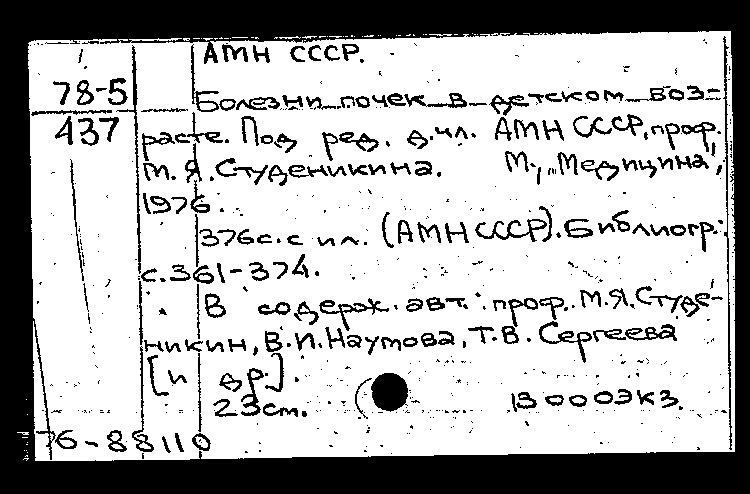 АМН СССР.
78-5
Болезни почек в детском воз-
437
расте. Под ред. д.чл. АМН СССР, проф.
М.Я.Студеникина. М., „Медицина",
1976.
376с.с ил. (АМН СССР). Библиогр.:
с.361-374.
В содерж. авт.: проф. М.Я.Студе-
никин, В.И.Наумова, Т.В. Сергеева
[и др.].
23см. 13000экз.
76-88110